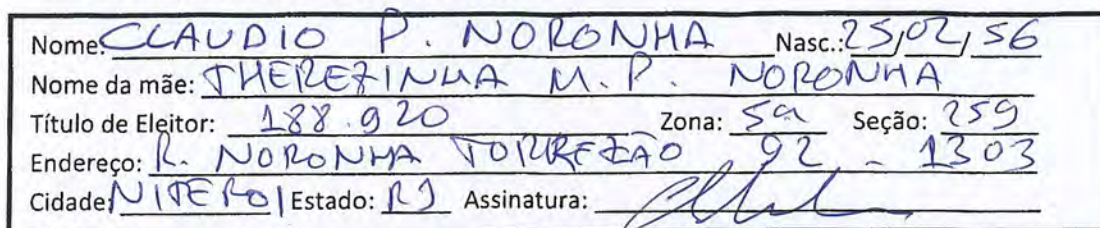 Nome: CLAUDIO P. NORONHA Nasc.: 25/02/56
Nome da mãe: THEREZINHA M. P. NORONHA
Título de Eleitor: 188.920 Zona: 5a Seção: 259
Endereço: R. NORONHA TORREZÃO 92 - 1303
Cidade: NITEROI Estado: RJ Assinatura: